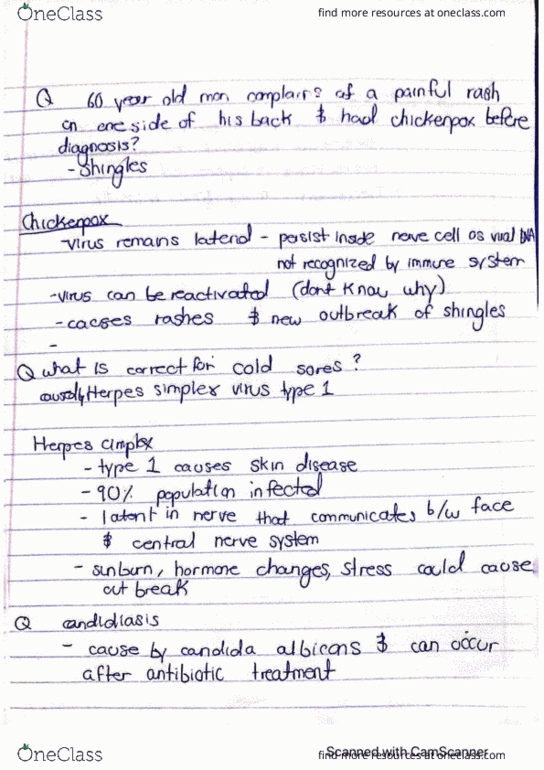 OneClass
find more resources at oneclass.com
Q 60 year old man complains of a painful rash
on one side of his back & had chickenpox before
diagnosis?
- Shingles
Chickenpox
- virus remains latend - persist inside nerve cell as viral DNA
not recognized by immune system
- virus can be reactivated (dont know why)
- causes rashes & new outbreak of shingles
-
Q what is correct for cold sores?
Herpes simplex virus type 1
Herpes simplex
- type 1 causes skin disease
- 90% population infected
- latent in nerve that communicates b/w face
& central nerve system
- sunburn, hormone changes, stress could cause
out break
Q candidiasis
- cause by candida albicans & can occur
after antibiotic treatment
OneClass
find more resources at oneclass.com
Scanned with CamScanner